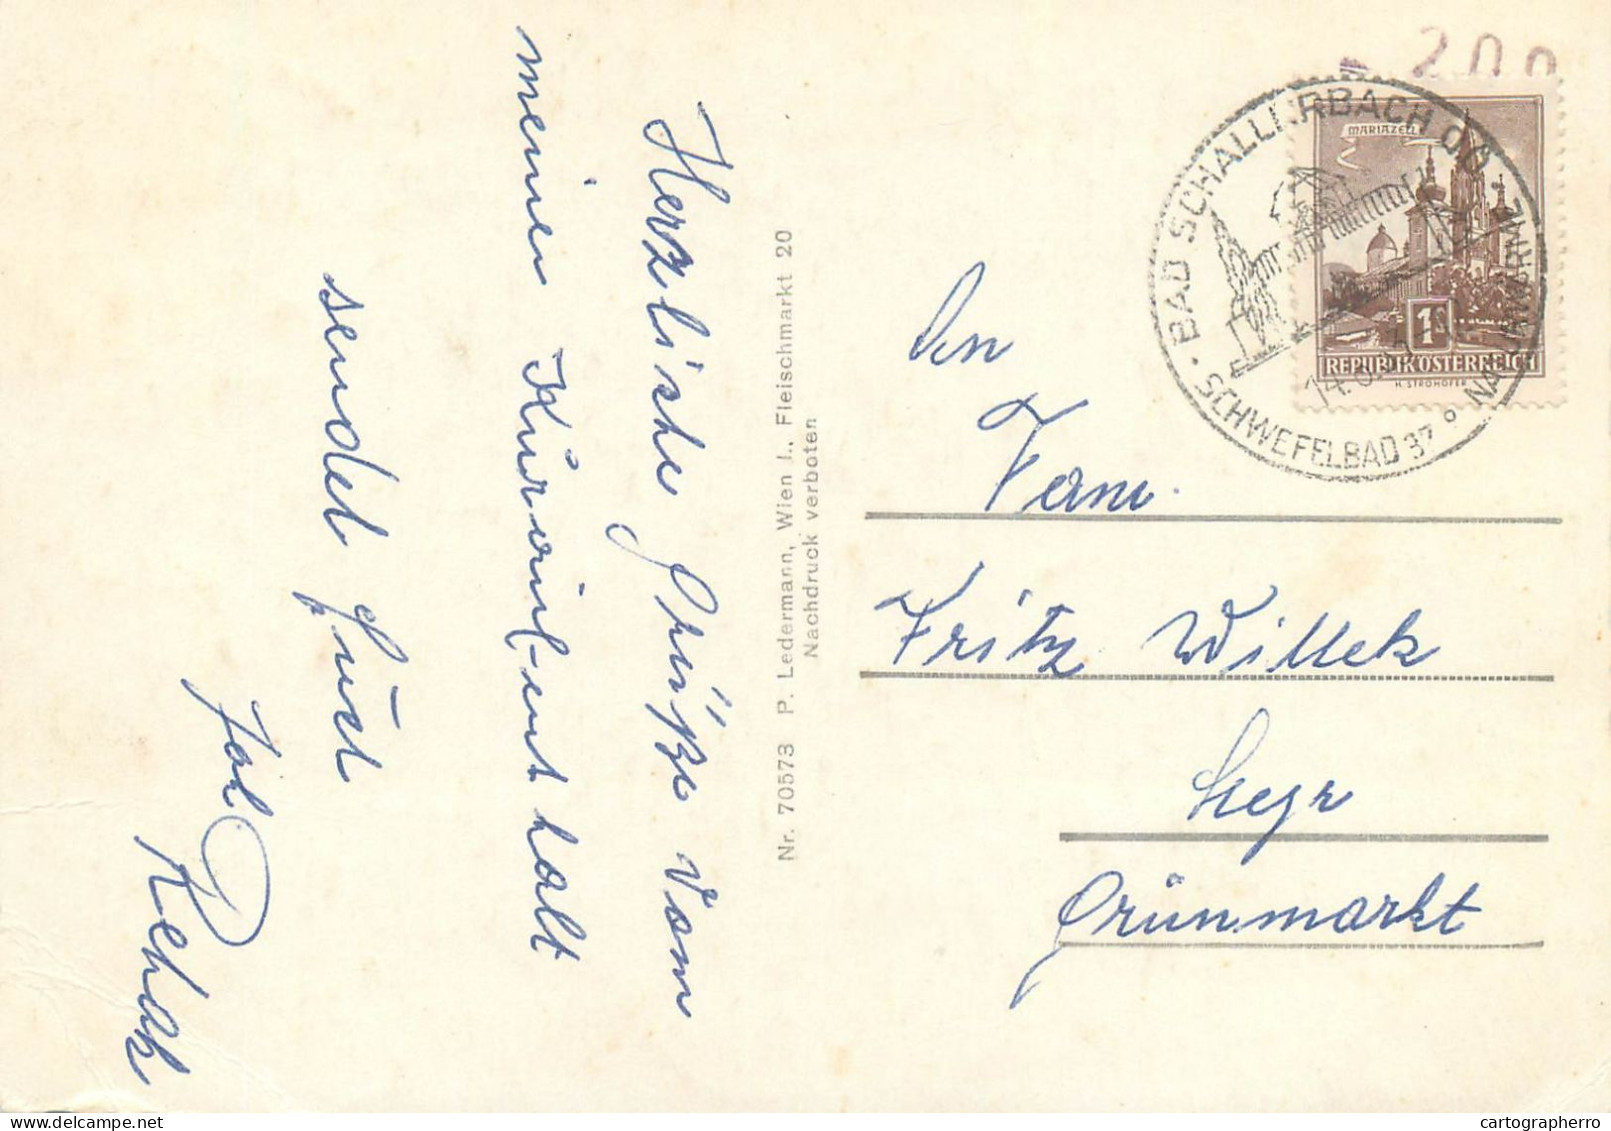 Herzlische Grüße vom
meinen Kuraufenthalt
sendet
Rehak
Nr. 70573 P. Ledermann, Wien I., Fleischmarkt 20
Nachdruck verboten
200
BAD SCHALLERBACH OÖ
SCHWEFELBAD 37°
MARIAZELL
1S
REPUBLIK ÖSTERREICH
H. STROHOFER
An
Fam.
Fritz Willek
Steyr
Grünmarkt
cartographerro